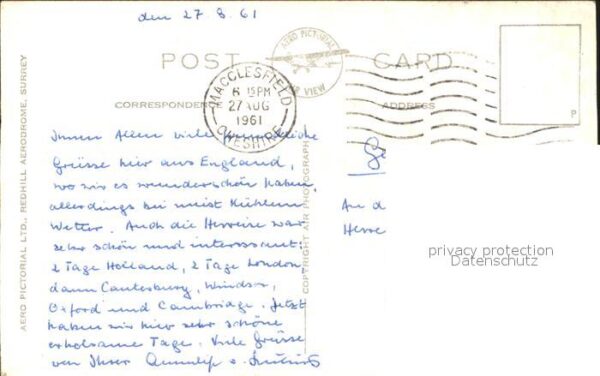 den 27 8. 61
POST CARD
AERO PICTORIAL
AIR VIEW
MACCLESFIELD
6 15PM
27 AUG
1961
CHESHIRE
CORRESPONDENCE
ADDRESS
P
Ihnen Allen viele
Grüsse hier aus England,
wo wir es wunderschön haben,
allerdings bei meist kühlem
Wetter. Auch die Herreise war
sehr schön und interessant:
2 Tage Holland, 2 Tage London
dann Canterbury, Windsor,
Oxford und Cambridge. Jetzt
haben wir hier sehr schöne
erholsame Tage. Viele Grüsse
von Ihrer
An d
Herre
AERO PICTORIAL LTD., REDHILL AERODROME, SURREY
COPYRIGHT AIR PHOTOGRAPH
privacy protection
Datenschutz